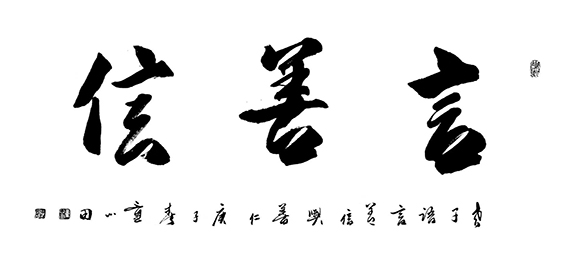 言善信
老子語言善信與善仁庚子春童小田